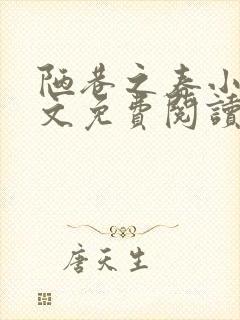 陋巷之春小
文免費閱讀
唐天生